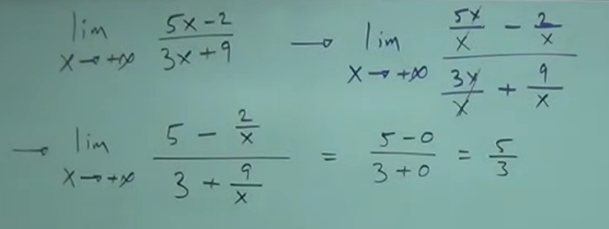 lim x→+∞ (5x-2)/(3x+9) → lim x→+∞ (5x/x - 2/x)/(3x/x + 9/x)
→ lim x→+∞ (5 - 2/x)/(3 + 9/x) = (5-0)/(3+0) = 5/3